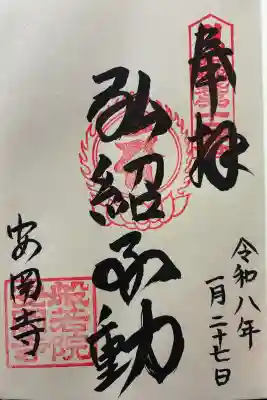 奉拝
弘紹不動
令和八年
一月二十七日
安国寺
般若院